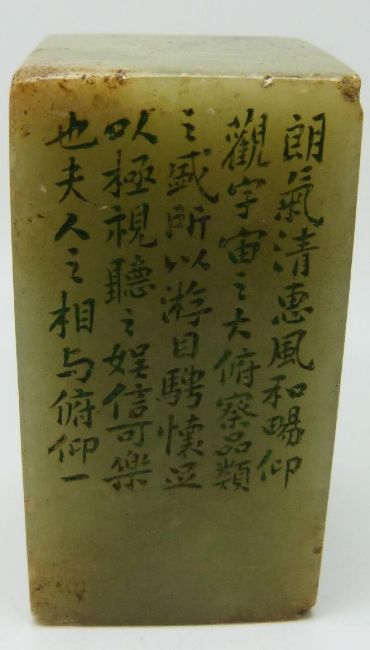 朗氣清惠風和暢仰
觀宇宙之大俯察品類
之盛所以游目騁懷足
以極視聽之娛信可樂
也夫人之相与俯仰一